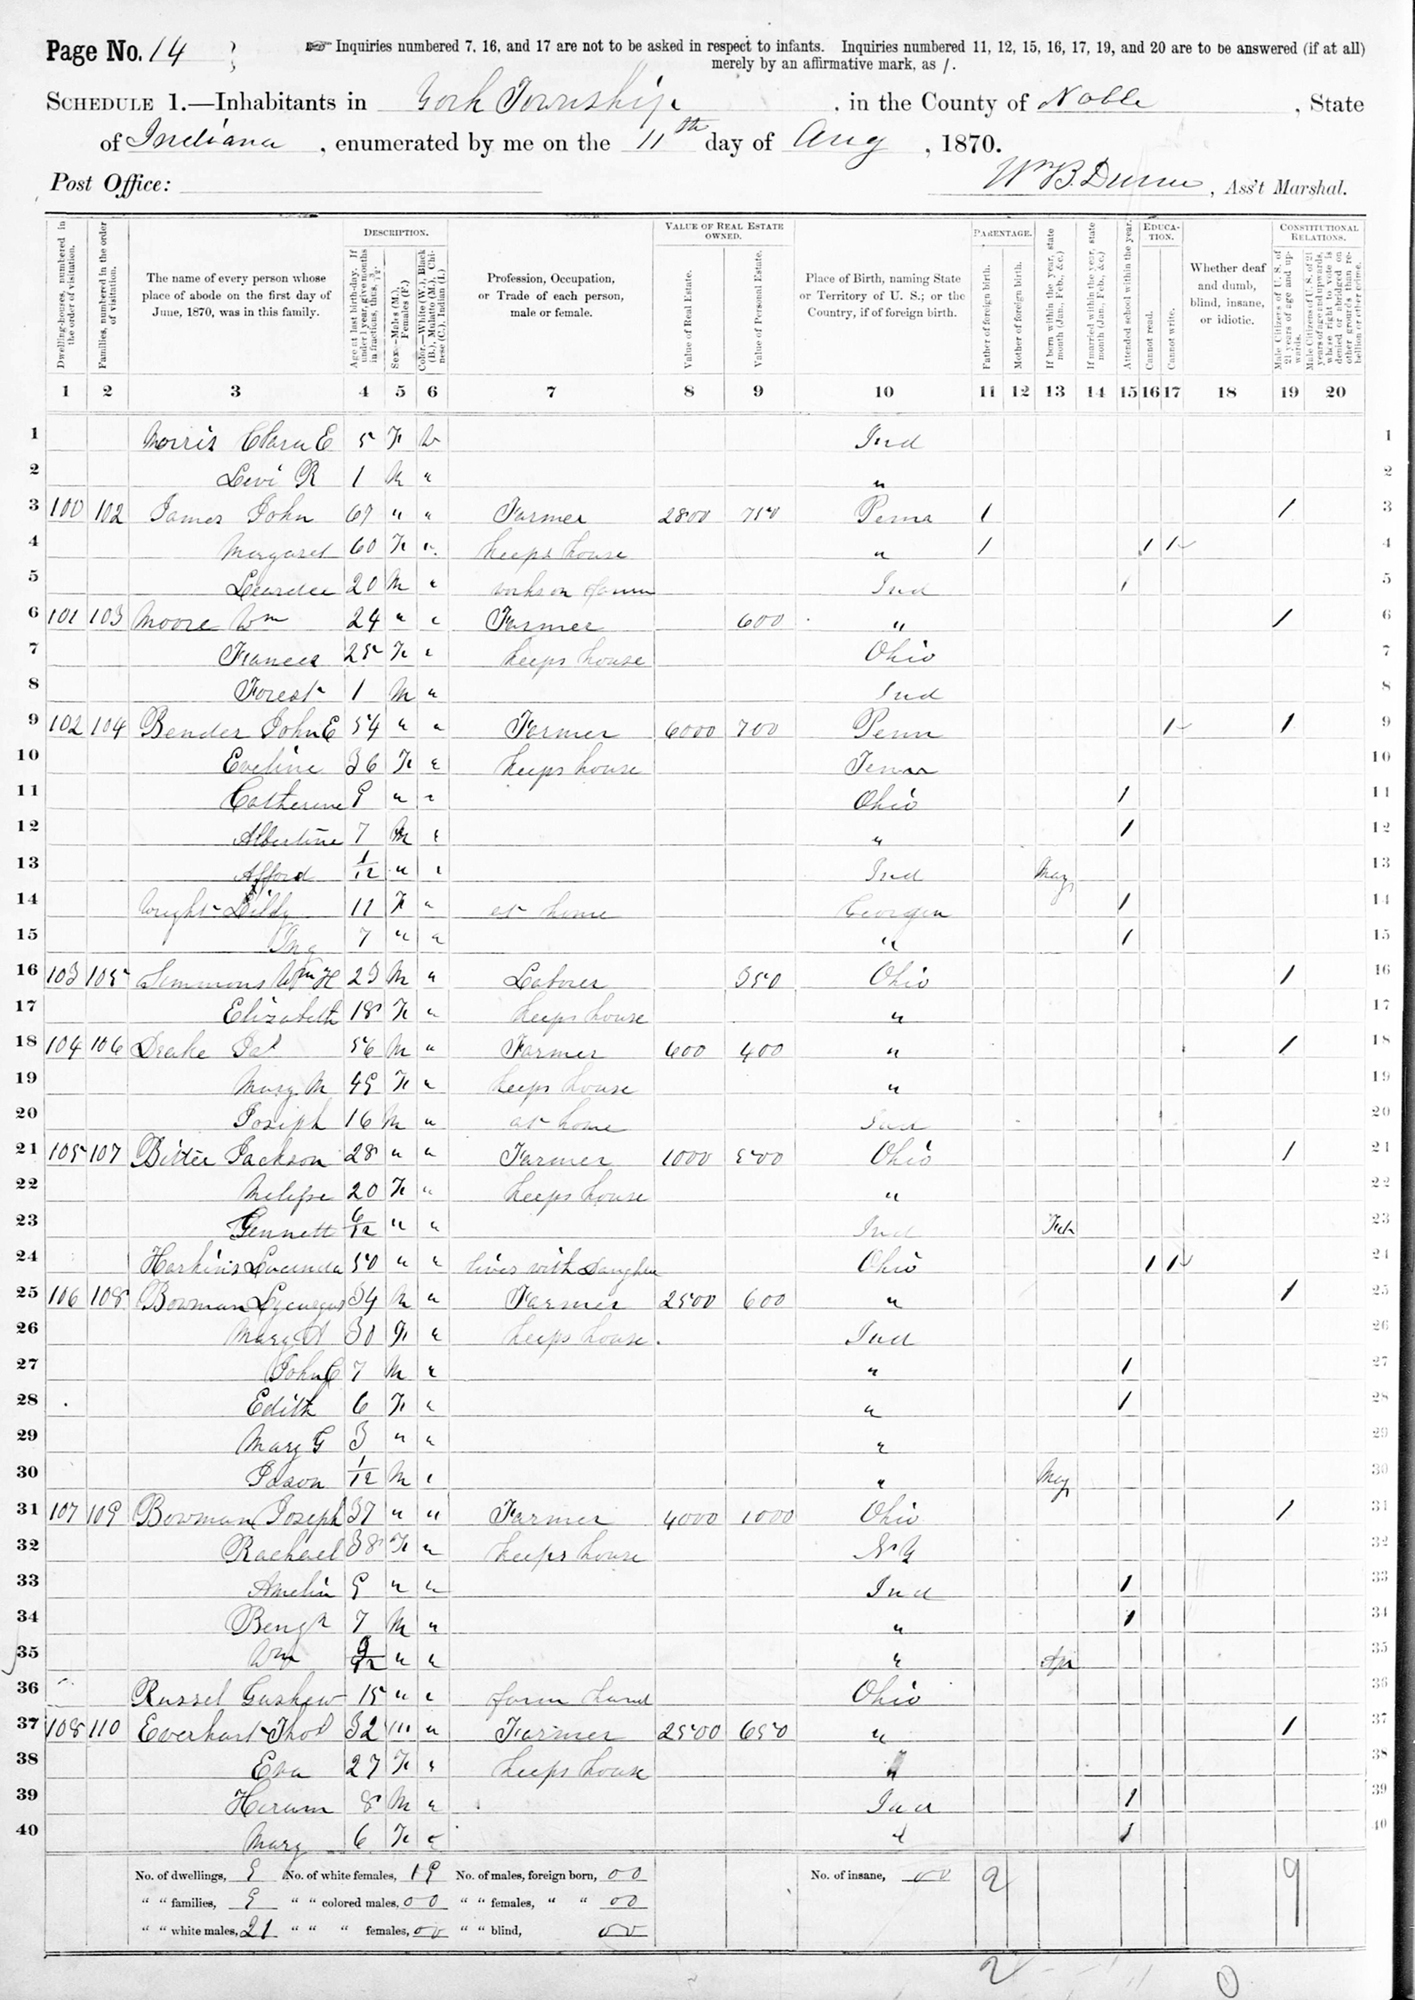 Page No. 14
☞ Inquiries numbered 7, 16, and 17 are not to be asked in respect to infants. Inquiries numbered 11, 12, 15, 16, 17, 19, and 20 are to be answered (if at all)
merely by an affirmative mark, as /.
SCHEDULE 1.—Inhabitants in York Township, in the County of Noble, State
of Indiana, enumerated by me on the 11th day of Aug, 1870.
Post Office: Wm B. Dunn, Ass't Marshal.
DESCRIPTION. VALUE OF REAL ESTATE OWNED. PARENTAGE. EDUCATION. CONSTITUTIONAL RELATIONS.
Dwelling-houses, numbered in the order of visitation.
Families, numbered in the order of visitation.
The name of every person whose place of abode on the first day of June, 1870, was in this family.
Age at last birth-day. If under 1 year, give months in fractions, thus, 3/12
Sex.—Males (M.), Females (F.)
Color.—White (W.), Black (B.), Mulatto (M.), Chinese (C.), Indian (I.)
Profession, Occupation, or Trade of each person, male or female.
Value of Real Estate.
Value of Personal Estate.
Place of Birth, naming State or Territory of U. S.; or the Country, if of foreign birth.
Father of foreign birth.
Mother of foreign birth.
If born within the year, state month (Jan., Feb., &c.)
If married within the year, state month (Jan., Feb., &c.)
Attended school within the year.
Cannot read.
Cannot write.
Whether deaf and dumb, blind, insane, or idiotic.
Male Citizens of U. S. of 21 years of age and upwards.
Male Citizens of U. S. of 21 years of age and upwards, whose right to vote is denied or abridged on other grounds than rebellion or other crime.
1 2 3 4 5 6 7 8 9 10 11 12 13 14 15 16 17 18 19 20
1 Morris Clara E 5 F W Ind 1
2 Levi R 1 M " " 2
3 100 102 James John 67 " " Farmer 2800 710 Penna / / 3
4 Margaret 60 F " keeps house " / / / 4
5 20 M " works on farm Ind / 5
6 101 103 Moore Wm 24 " " Farmer 600 " / 6
7 Frances 25 F " keeps house Ohio 7
8 Forest 1 M " Ind 8
9 102 104 Bender John E 54 " " Farmer 6000 700 Penn / / 9
10 Eveline 36 F " keeps house Tenn 10
11 Catherine 9 " " Ohio / 11
12 Albertine 7 M " " / 12
13 Afford 1/12 " " Ind May 13
14 Wright 11 F " at home Georgia / 14
15 7 " " " / 15
16 103 105 Simmons Wm H 23 M " Laborer 350 Ohio / 16
17 Elizabeth 18 F " keeps house " 17
18 104 106 Drake 56 M " Farmer 600 400 " / 18
19 Mary M 49 F " keeps house " 19
20 Joseph 16 M " at home Ind 20
21 105 107 Bitter Jackson 28 " " Farmer 1000 500 Ohio / 21
22 Melissa 20 F " keeps house " 22
23 Gennett 6/12 " " Ind Feb 23
24 Harkins Lucinda 50 " " lives with daughter Ohio / / 24
25 106 108 Bowman Lycurgus 34 M " Farmer 2500 600 " / 25
26 Mary A 30 F " keeps house. Ind 26
27 John C 7 M " " / 27
28 Edith 6 F " " / 28
29 Mary G 3 " " " 29
30 Jason 1/12 M " " May 30
31 107 109 Bowman Joseph 37 " " Farmer 4000 1000 Ohio / 31
32 Rachael 38 F " keeps house N Y 32
33 Amelia 9 " " Ind / 33
34 Benj 7 M " " / 34
35 Wm " " " Apr 35
36 Russel 15 " " farm hand Ohio 36
37 108 110 Everhart Thos 32 M " Farmer 2500 650 " / 37
38 Eva 27 F " keeps house " 38
39 Hiram 8 M " Ind / 39
40 Mary 6 F " " / 40
No. of dwellings, 9 No. of white females, 19 No. of males, foreign born, 00 No. of insane, 00 2 9
" " families, 9 " " colored males, 00 " " females, " " 00
" " white males, 21 " " " females, 00 " " blind, 00
2 0